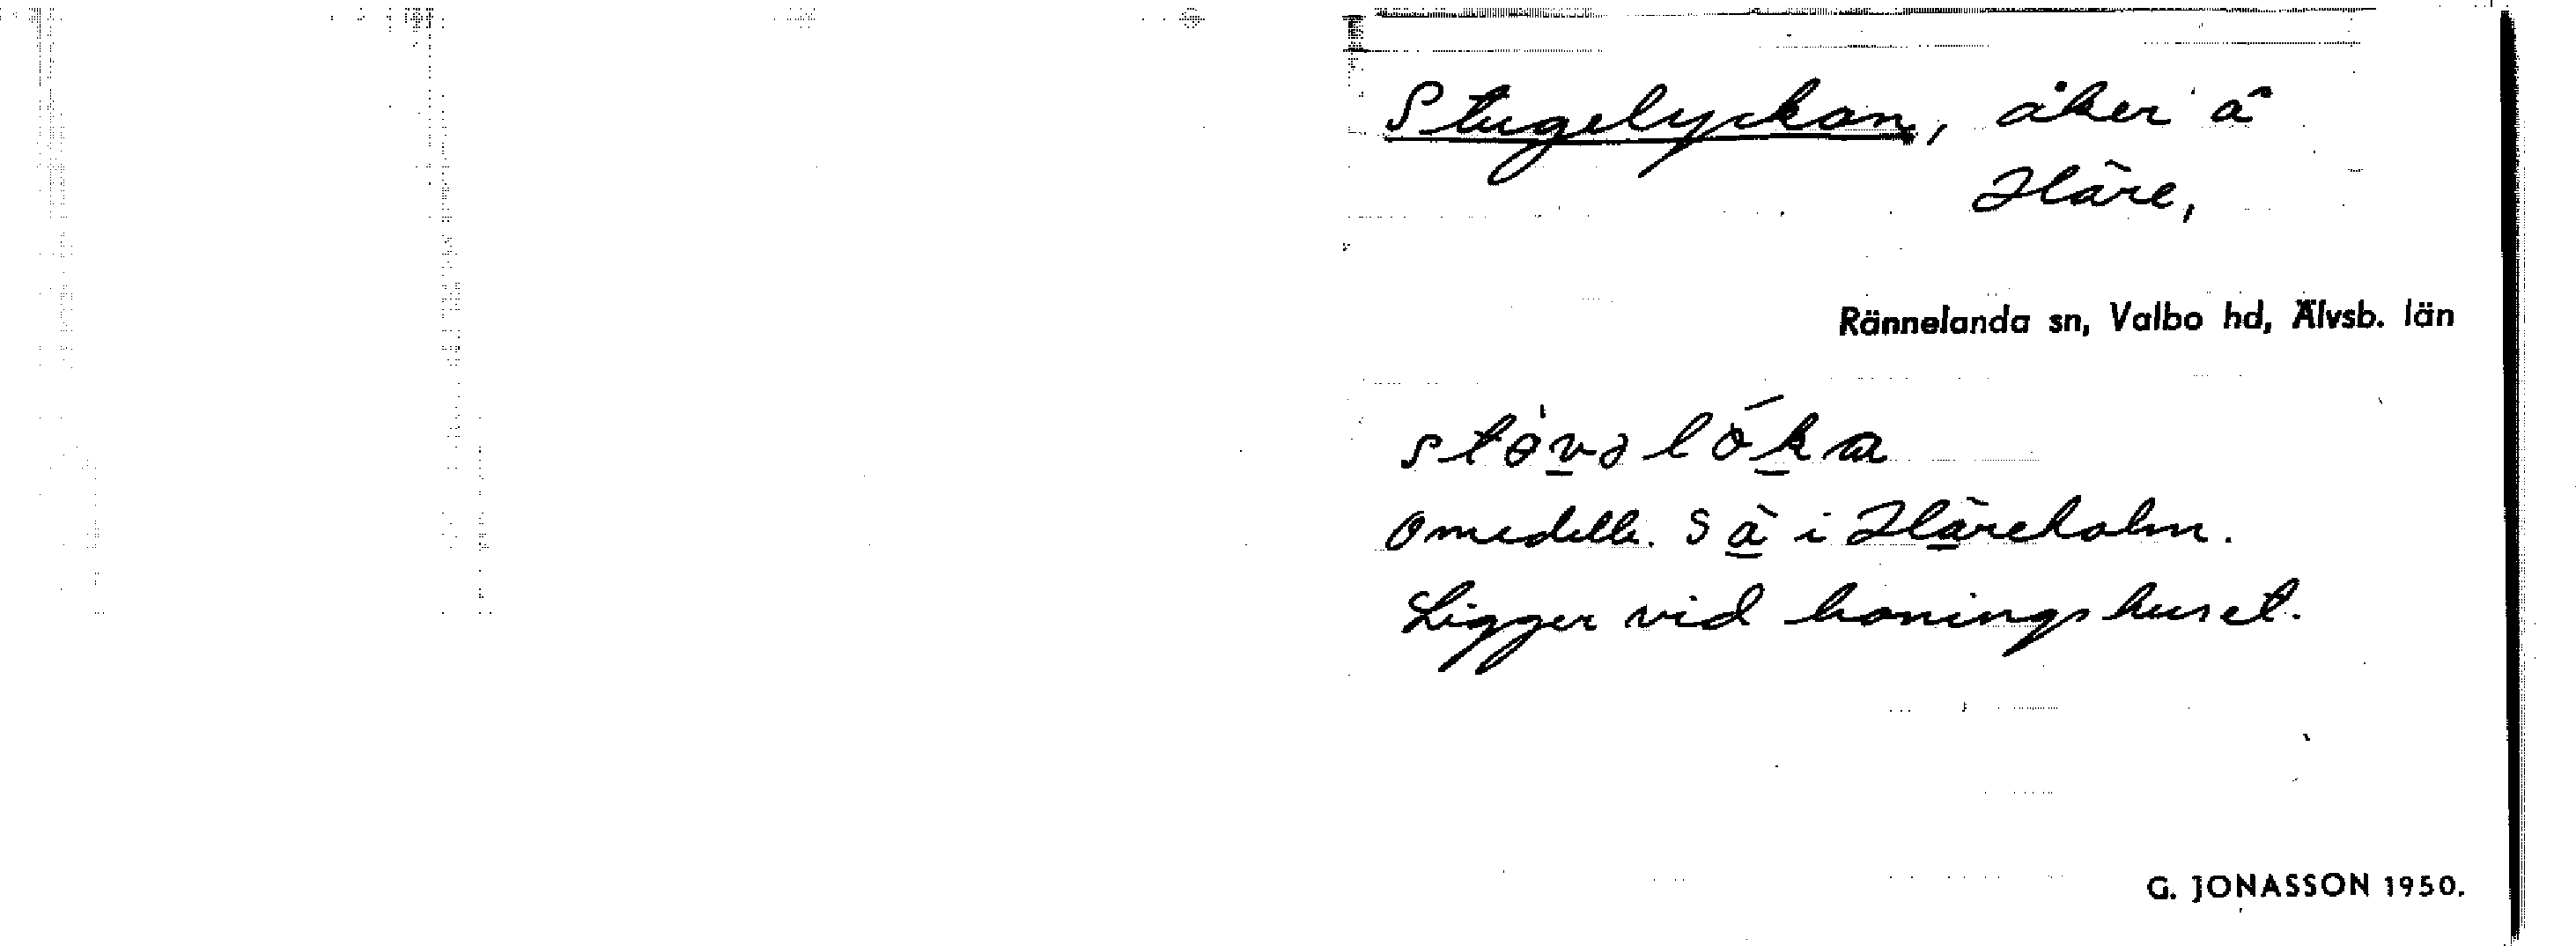 Stugelyckan, åker å
Häre,
Rännelanda sn, Valbo hd, Älvsb. län
stövəlöka
Omedelb. S ä i Häreholm.
Ligger vid honingshuset.
G. JONASSON 1950.